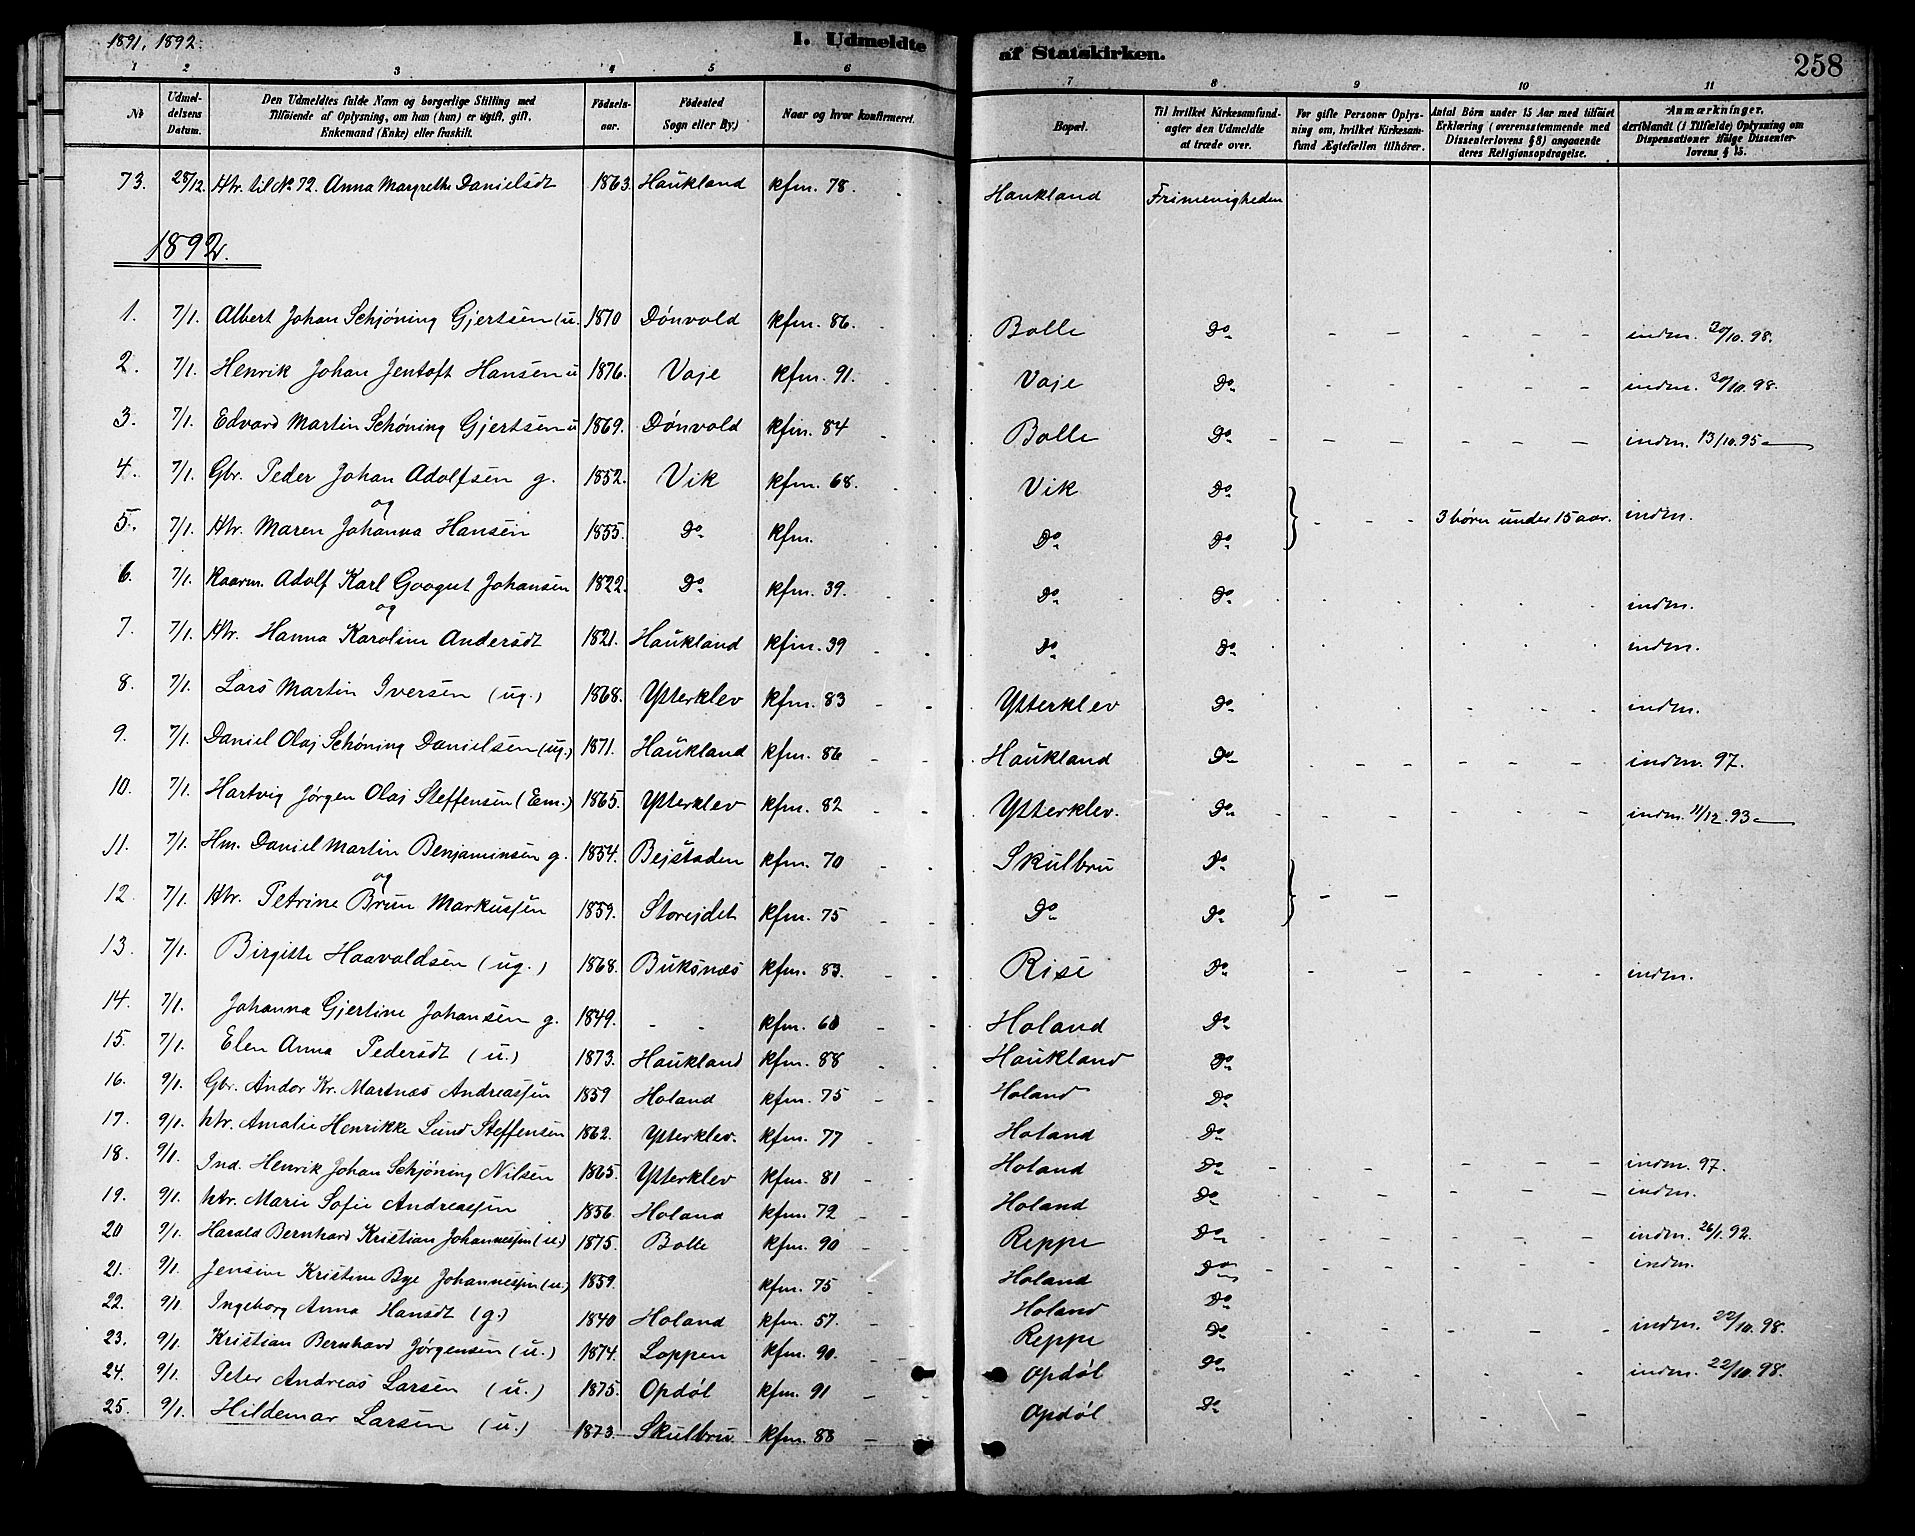 1891, 1892.
I. Udmeldte af Statskirken.
258
1 2 3 4 5 6 7 8 9 10 11
No
Udmeldelsens Datum.
Den Udmeldtes fulde Navn og borgerlige Stilling med Tilføiende af Oplysning, om han (hun) er ugift, gift, Enkemand (Enke) eller fraskilt.
Fødselsaar.
Fødested Sogn eller By.)
Naar og hvor konfirmeret.
Bopæl.
Til hvilket Kirkesamfund agter den Udmeldte at træde over.
For gifte Personer Oplysning om, hvilket Kirkesamfund Ægtefællen tilhører.
Antal Børn under 15 Aar med tilføiet Erklæring (overensstemmende med Dissenterlovens § 8) angaaende deres Religionsopdragelse.
Anmærkninger, deriblandt (i Tilfælde) Oplysning om Dispensationer ifølge Dissenterlovens § 15.
73. 28/12. Htr. til No 72. Anna Margrethe Danielsdt 1863. Haukland kfm. 78. Haukland Frimenigheden
1892.
1. 7/1. Albert Johan Schjöning Gjertsen (u. 1870 Dönvold kfm. 86. Bolle Do - - - - - indm. 30/10. 98.
2. 7/1. Henrik Johan Jentoft Hansen u 1876. Vaje kfm. 91. Vaje Do - - - - - indm. 30/10. 98.
3. 7/1. Edvard Martin Schöning Gjertsen u 1869. Dönvold kfm. 84 Bolle Do - - - - - indm. 13/10. 95
4. 7/1. Gbr. Peder Johan Adolfsen g. 1852. Vik kfm. 68. Vik Do
og
5. 7/1. Htr. Maren Johanna Hansen 1855. Do kfm. Do Do } - - - 3 børn under 15 aar. indm.
6. 7/1. Kaarm. Adolf Karl Googut Johansen 1822. Do kfm. 39. Do Do indm.
og
7. 7/1. Htr. Hanna Karoline Andersdt 1821. Haukland kfm. 39 Do Do indm.
8. 7/1. Lars Martin Iversen (ug.) 1868. Ytterklev kfm. 83 Ytterklev Do indm.
9. 7/1. Daniel Olaj Schöning Danielsen (ug.) 1871. Haukland kfm. 86 Haukland Do - - - - - indm. 97.
10. 7/1. Hartvig Jørgen Olaj Steffensen (Em.) 1865. Ytterklev kfm. 82 Ytterklev. Do - - - - - indm. 11/12. 93
11. 7/1. Hm. Daniel Martin Benjaminsen g. 1854. Bejstaden kfm. 70 Skulbru Do
og
12 7/1. Htr. Petrine Brun Markussen 1859. Storejdet kfm. 75 Do Do } - -
13. 7/1. Birgitte Haavaldsen (ug.) 1868. Buksnæs kfm. 83. Rise Do - - - - - indm.
14. 7/1. Johanna Gjertine Johansen g. 1849. - - kfm. 60 Holand Do
15. 7/1. Elen Anna Pedersdt (u.) 1873. Haukland kfm. 88 Haukland Do
16. 9/1. Gbr. Andor Kr. Martnæs Andreassen 1859 Holand kfm. 75 Holand Do
17. 9/1. Htr. Amalie Henrikke Lund Steffensen 1862. Ytterklev. kfm. 77 Holand Do
18. 9/1. Ind. Henrik Johan Schjöning Nilsen 1865. Ytterklev kfm. 81 Holand Do - - - - - indm. 97.
19. 9/1. Htr. Marie Sofie Andreassen 1856. Holand kfm. 72 Holand Do - - - - - indm.
20 9/1. Harald Bernhard Kristian Johannessen (u.) 1875. Bolle kfm. 90 Reppe Do - - - - - indm. 26/1. 92.
21. 9/1. Jensine Kristine Bye Johannessen (u.) 1859. kfm. 75 Holand Do - - - - - indm.
22. 9/1. Ingeborg Anna Hansdt (g.) 1840 Holand kfm. 57. Holand Do
23. 9/1. Kristian Bernhard Jørgensen (u.) 1874. Loppen kfm. 90. Reppe Do - - - - - indm. 22/10. 98.
24. 9/1. Peter Andreas Larsen (u.) 1875. Opdöl kfm. 91 Opdöl Do indm. 22/10. 98.
25. 9/1. Hildemar Larsen (u.) 1873. Skulbru kfm. 88 Opdöl Do